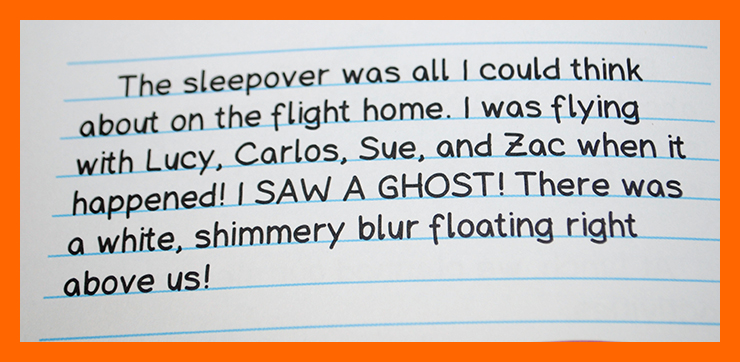 The sleepover was all I could think
about on the flight home. I was flying
with Lucy, Carlos, Sue, and Zac when it
happened! I SAW A GHOST! There was
a white, shimmery blur floating right
above us!